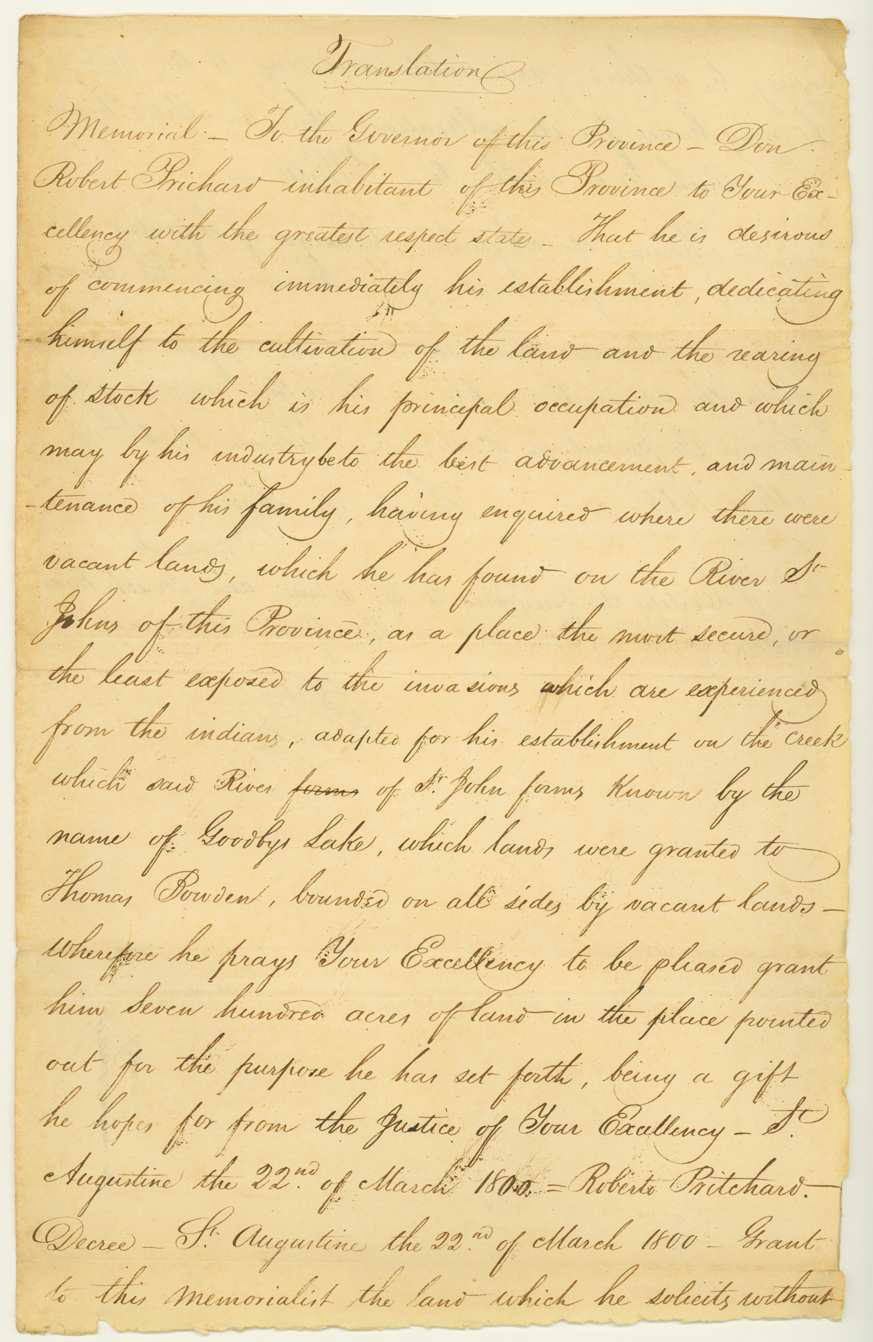 Translation
Memorial – To the Governor of this Province – Don
Robert Prichard inhabitant of this Province to Your Ex-
cellency with the greatest respect states – That he is desirous
of commencing immediately his establishment, dedicating
himself to the cultivation of the land and the rearing
of stock which is his principal occupation and which
may by his industry be to the best advancement, and main-
-tenance of his family, having enquired where there were
vacant lands, which he has found on the River St
Johns of this Province, as a place the most secure, or
the least exposed to the invasions which are experienced
from the indians, adapted for his establishment on the creek
which said River forms of St. John forms Known by the
name of Goodbys Lake, which lands were granted to
Thomas Bowden, bounded on all sides by vacant lands –
wherefore he prays Your Excellency to be pleased grant
him Seven hundred acres of land in the place pointed
out for the purpose he has set forth, being a gift
he hopes for from the Justice of Your Excellency – St.
Augustine the 22nd. of March 1800. = Roberto Pritchard. –
Decree – St. Augustine the 22nd. of March 1800 – Grant
to this Memorialist the land which he solicits without